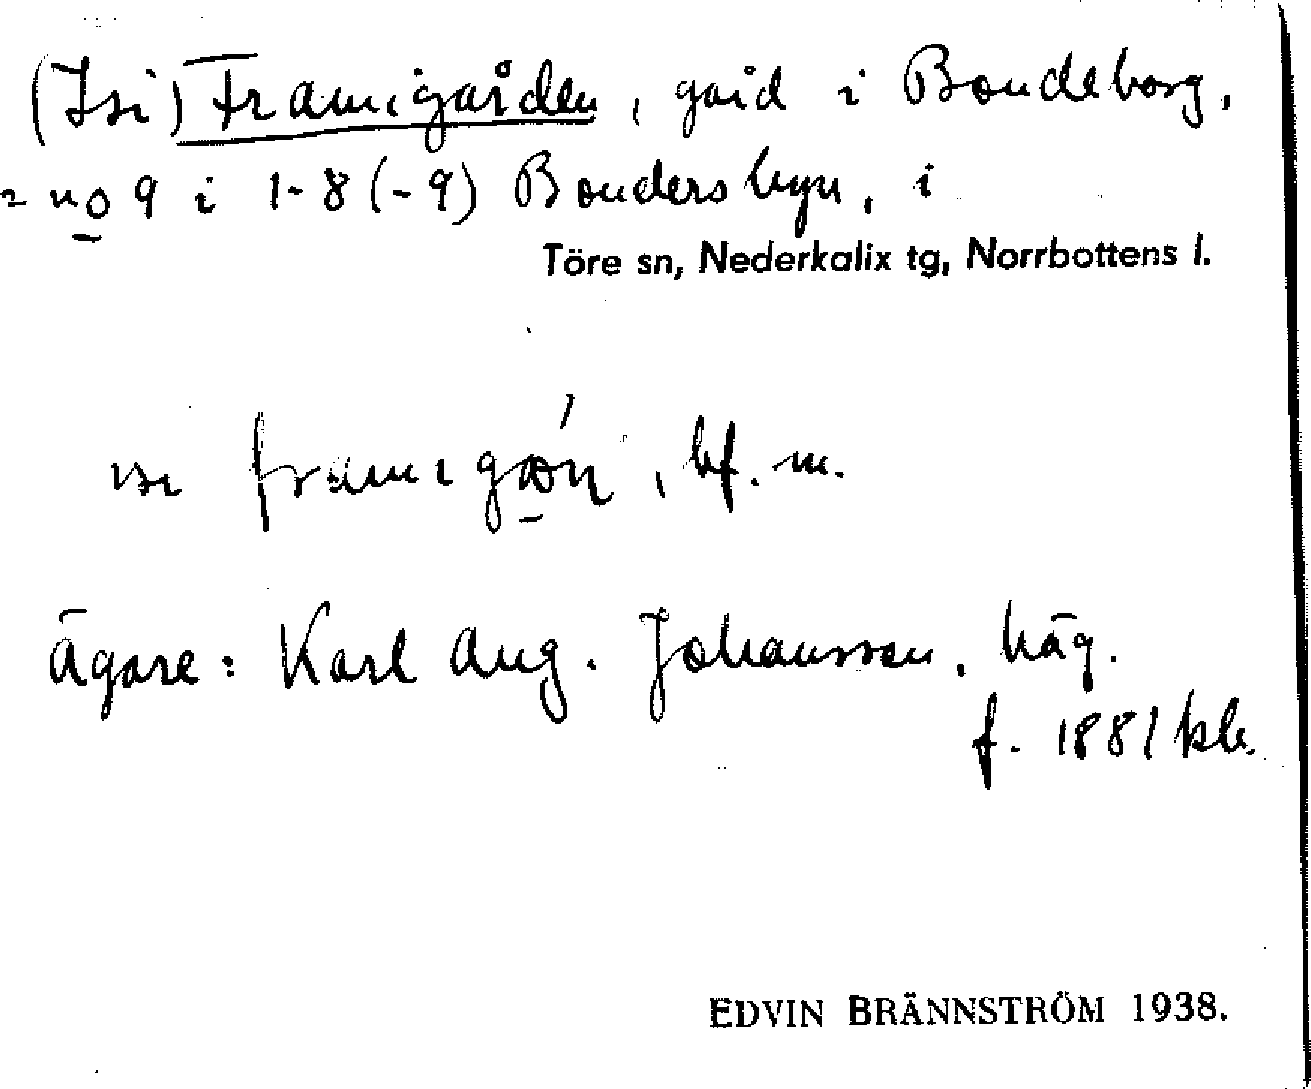 (Isi) Framigården, gård i Bondeborg,
= no 9 i 1-8 (-9) Bondersbyn, i
Töre sn, Nederkalix tg, Norrbottens l.
ɪsɪ
, bf. m.
Ägare: Karl Aug. Johansson, häg.
f. 1881
EDVIN BRÄNNSTRÖM 1938.